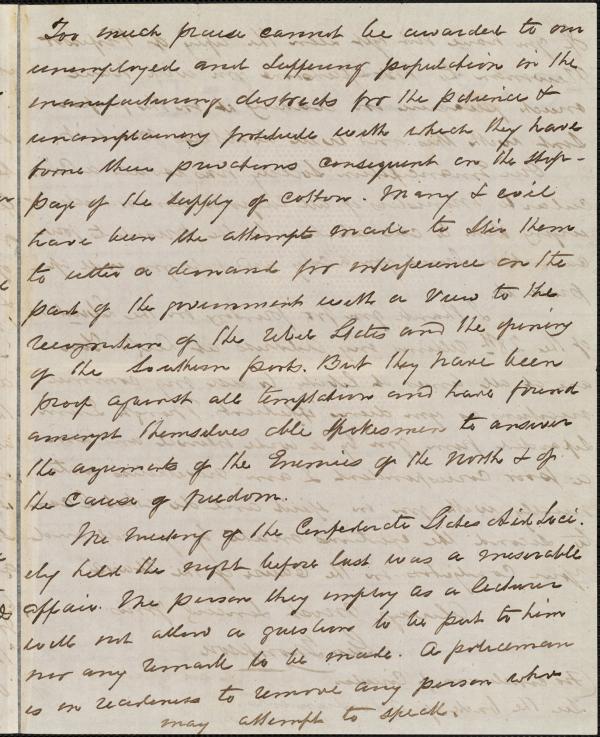 Too much praise cannot be awarded to our
unemployed and suffering population in the
manufacturing districts for the patience &
uncomplaining fortitude with which they have
borne their privations consequent on the stop-
page of the supply of cotton. Many & evil
have been the attempts made to stir them
to utter a demand for interference on the
part of the government with a view to the
recognition of the Rebel States and the opening
of the Southern ports. But they have been
proof against all temptation and have found
amongst themselves able spokesmen to answer
the arguments of the Enemies of the North & of
the cause of freedom.
The meeting of the Confederate States Aid Soci-
ety held the night before last was a miserable
affair. The person they employ as a lecturer
will not allow a question to be put to him
nor any remark to be made. A policeman
is in readiness to remove any person who
may attempt to speak.